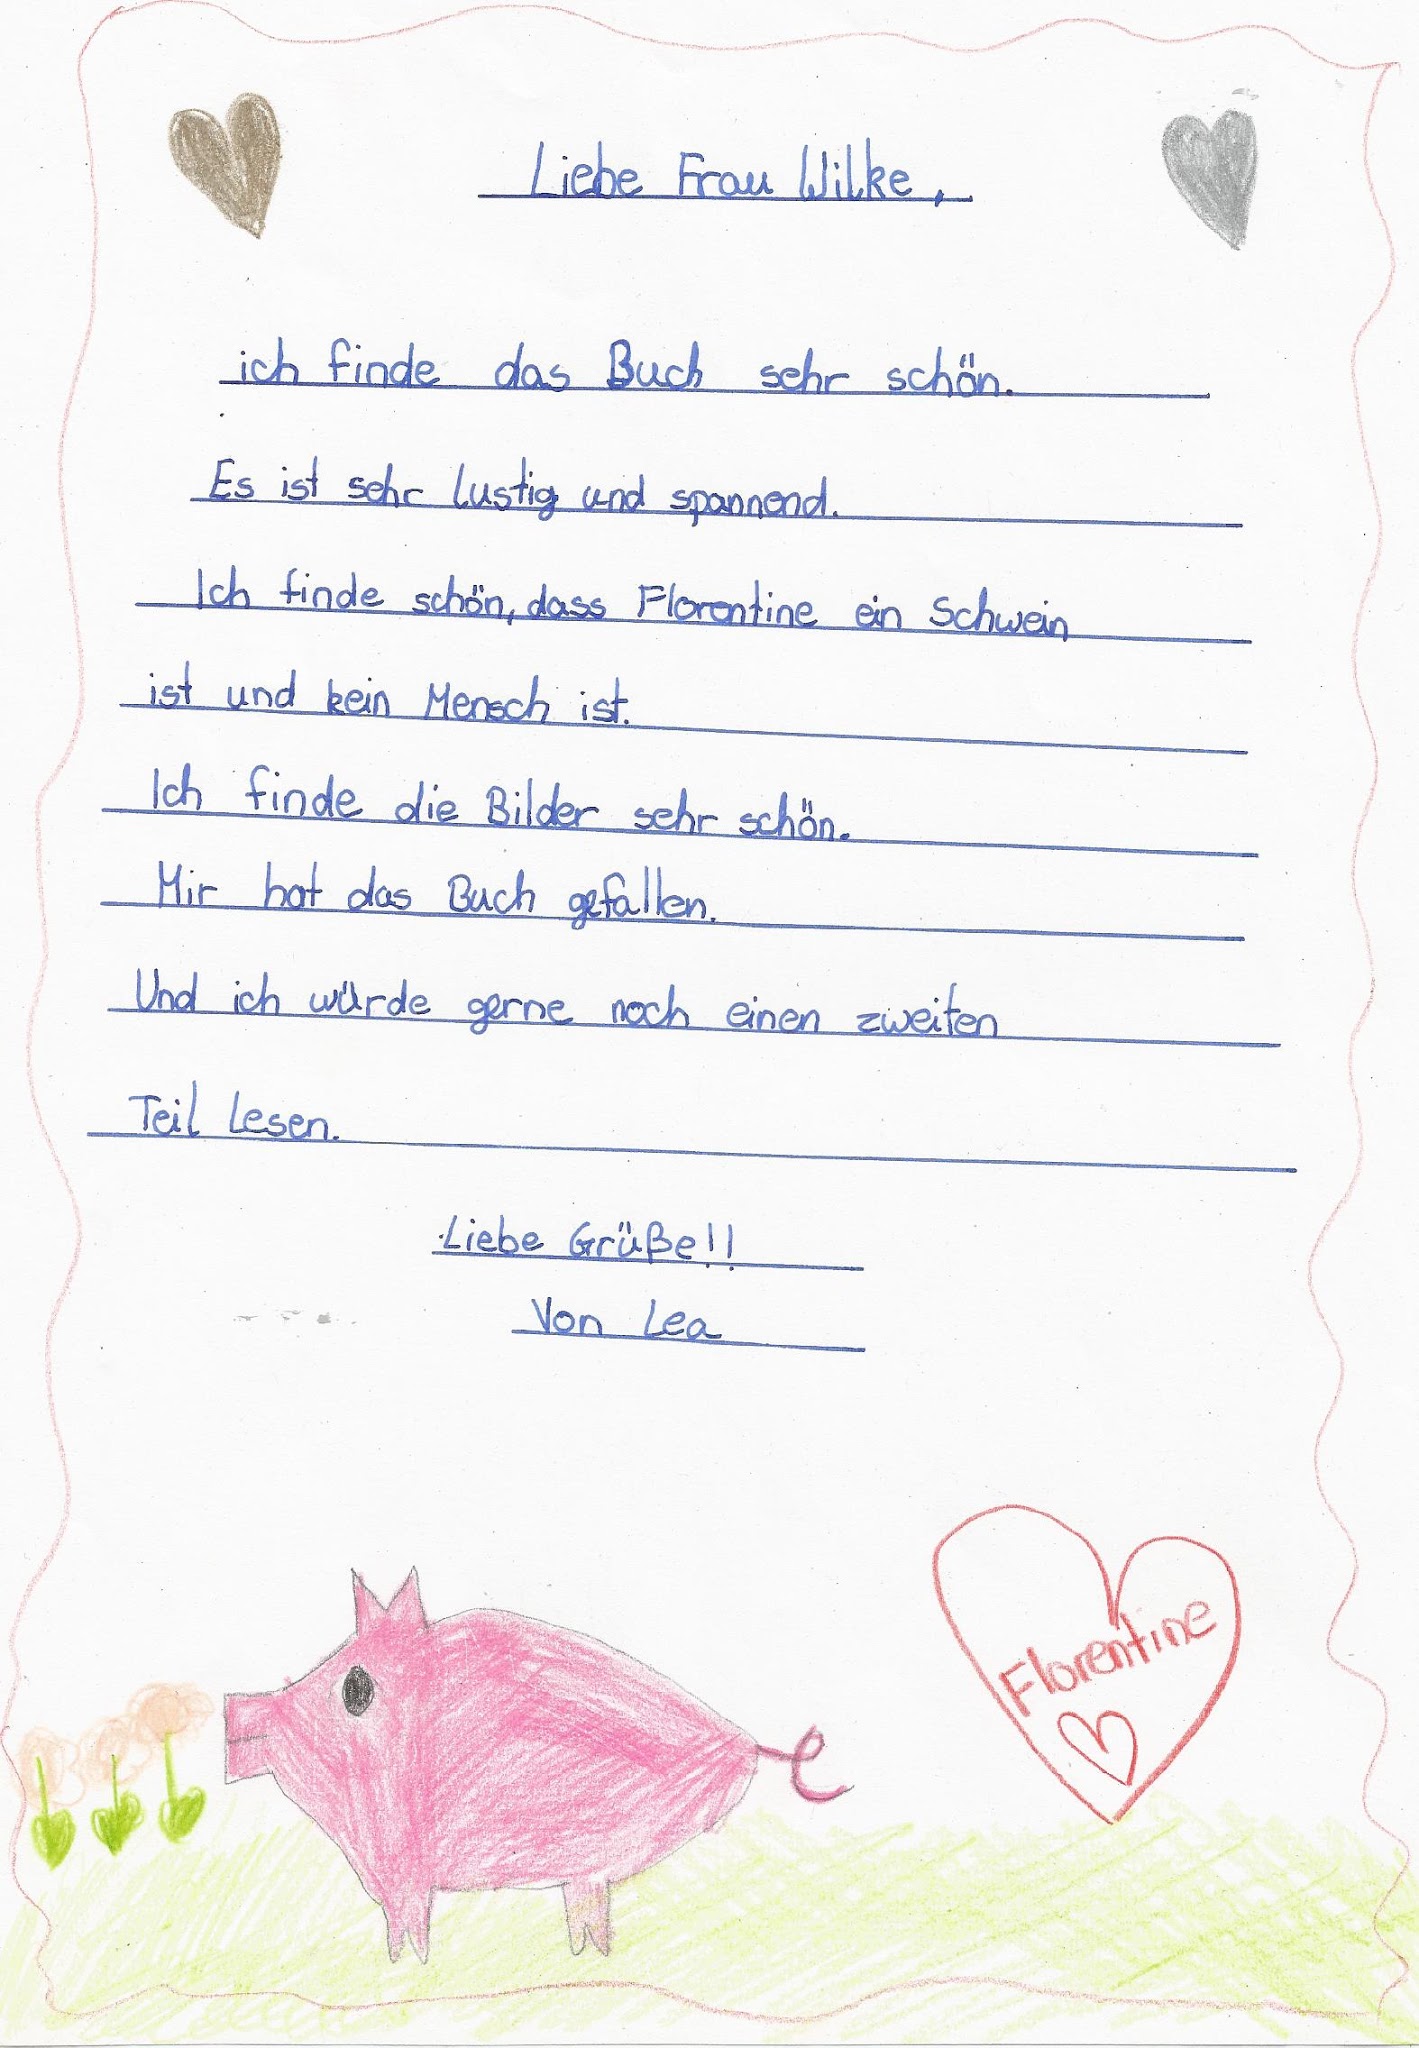 Liebe Frau Wilke,
ich finde das Buch sehr schön.
Es ist sehr lustig und spannend.
Ich finde schön, dass Florentine ein Schwein
ist und kein Mensch ist.
Ich finde die Bilder sehr schön.
Mir hat das Buch gefallen.
Und ich würde gerne noch einen zweiten
Teil lesen.
Liebe Grüße!!
Von Lea
Florentine